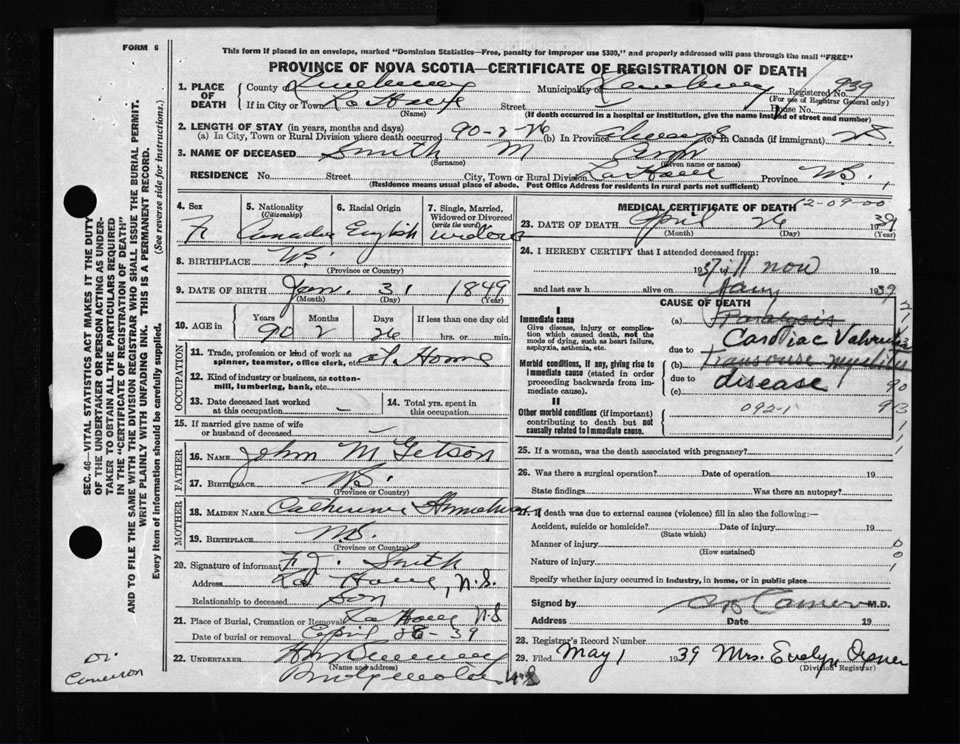 FORM 6
This form if placed in an envelope, marked "Dominion Statistics—Free, penalty for improper use $300," and properly addressed will pass through the mail "FREE"
PROVINCE OF NOVA SCOTIA—CERTIFICATE OF REGISTRATION OF DEATH
1. PLACE OF DEATH
County of Lunenburg Municipality of Lunenburg Registered No. 939
(For use of Registrar General only)
If in City or Town La Have Street House No.
(Name) (If death occurred in a hospital or institution, give the name instead of street and number)
2. LENGTH OF STAY (in years, months and days)
(a) In City, Town or Rural Division where death occurred 90-2-26 (b) In Province always (c) In Canada (if immigrant)
3. NAME OF DECEASED Smith M
(Surname) (Given name or names)
RESIDENCE No. Street City, Town or Rural Division La Have Province N.S.
(Residence means usual place of abode. Post Office Address for residents in rural parts not sufficient)
4. Sex
F
5. Nationality (Citizenship)
Canadian
6. Racial Origin
English
7. Single, Married, Widowed or Divorced (write the word)
widow
8. BIRTHPLACE N.S.
(Province or Country)
9. DATE OF BIRTH Jan. 31 1849
(Month) (Day) (Year)
10. AGE in Years Months Days If less than one day
90 2 26 hrs. or min.
OCCUPATION
11. Trade, profession or kind of work as spinner, teamster, office clerk, etc. at Home
12. Kind of industry or business, as cotton-mill, lumbering, bank, etc.
13. Date deceased last worked at this occupation –
14. Total yrs. spent in this occupation
15. If married give name of wife or husband of deceased
FATHER
16. NAME John M Getson
17. BIRTHPLACE N.S.
(Province or Country)
MOTHER
18. MAIDEN NAME Catherine
19. BIRTHPLACE N.S.
(Province or Country)
20. Signature of informant F. J. Smith
Address La Have, N.S.
Relationship to deceased Son
21. Place of Burial, Cremation or Removal La Have N.S.
Date of burial or removal April 28-39
22. UNDERTAKER
(Name and address)
Bridgewater N.S.
MEDICAL CERTIFICATE OF DEATH 12-09-00
23. DATE OF DEATH April 26 1939
(Month) (Day) (Year)
24. I HEREBY CERTIFY that I attended deceased from:
1937 till now 19
and last saw h alive on 1939
CAUSE OF DEATH
I
Immediate cause
Give disease, injury or complication which caused death, not the mode of dying, such as heart failure, asphyxia, asthenia, etc.
(a) Paralysis
Cardiac Valvular
due to
Morbid conditions, if any, giving rise to immediate cause (stated in order proceeding backwards from immediate cause).
(b) transverse myelitis
due to disease
(c)
II
Other morbid conditions (if important) contributing to death but not causally related to immediate cause.
092-1
25. If a woman, was the death associated with pregnancy?
26. Was there a surgical operation? Date of operation 19
State findings Was there an autopsy?
27. If death was due to external causes (violence) fill in also the following:—
Accident, suicide or homicide? Date of injury 19
(State which)
Manner of injury
(How sustained)
Nature of injury
Specify whether injury occurred in industry, in home, or in public place
Signed by Cameron M.D.
Address Date 19
28. Registrar's Record Number
29. Filed May 1 1939 Mrs. Evelyn
(Division Registrar)
SEC. 46—VITAL STATISTICS ACT MAKES IT THE DUTY OF THE UNDERTAKER OR PERSON ACTING AS UNDERTAKER TO OBTAIN ALL THE PARTICULARS REQUIRED IN THE "CERTIFICATE OF REGISTRATION OF DEATH" AND TO FILE THE SAME WITH THE DIVISION REGISTRAR WHO SHALL ISSUE THE BURIAL PERMIT.
WRITE PLAINLY WITH UNFADING INK. THIS IS A PERMANENT RECORD.
Every item of information should be carefully supplied. (See reverse side for instructions.)
Dr. Cameron